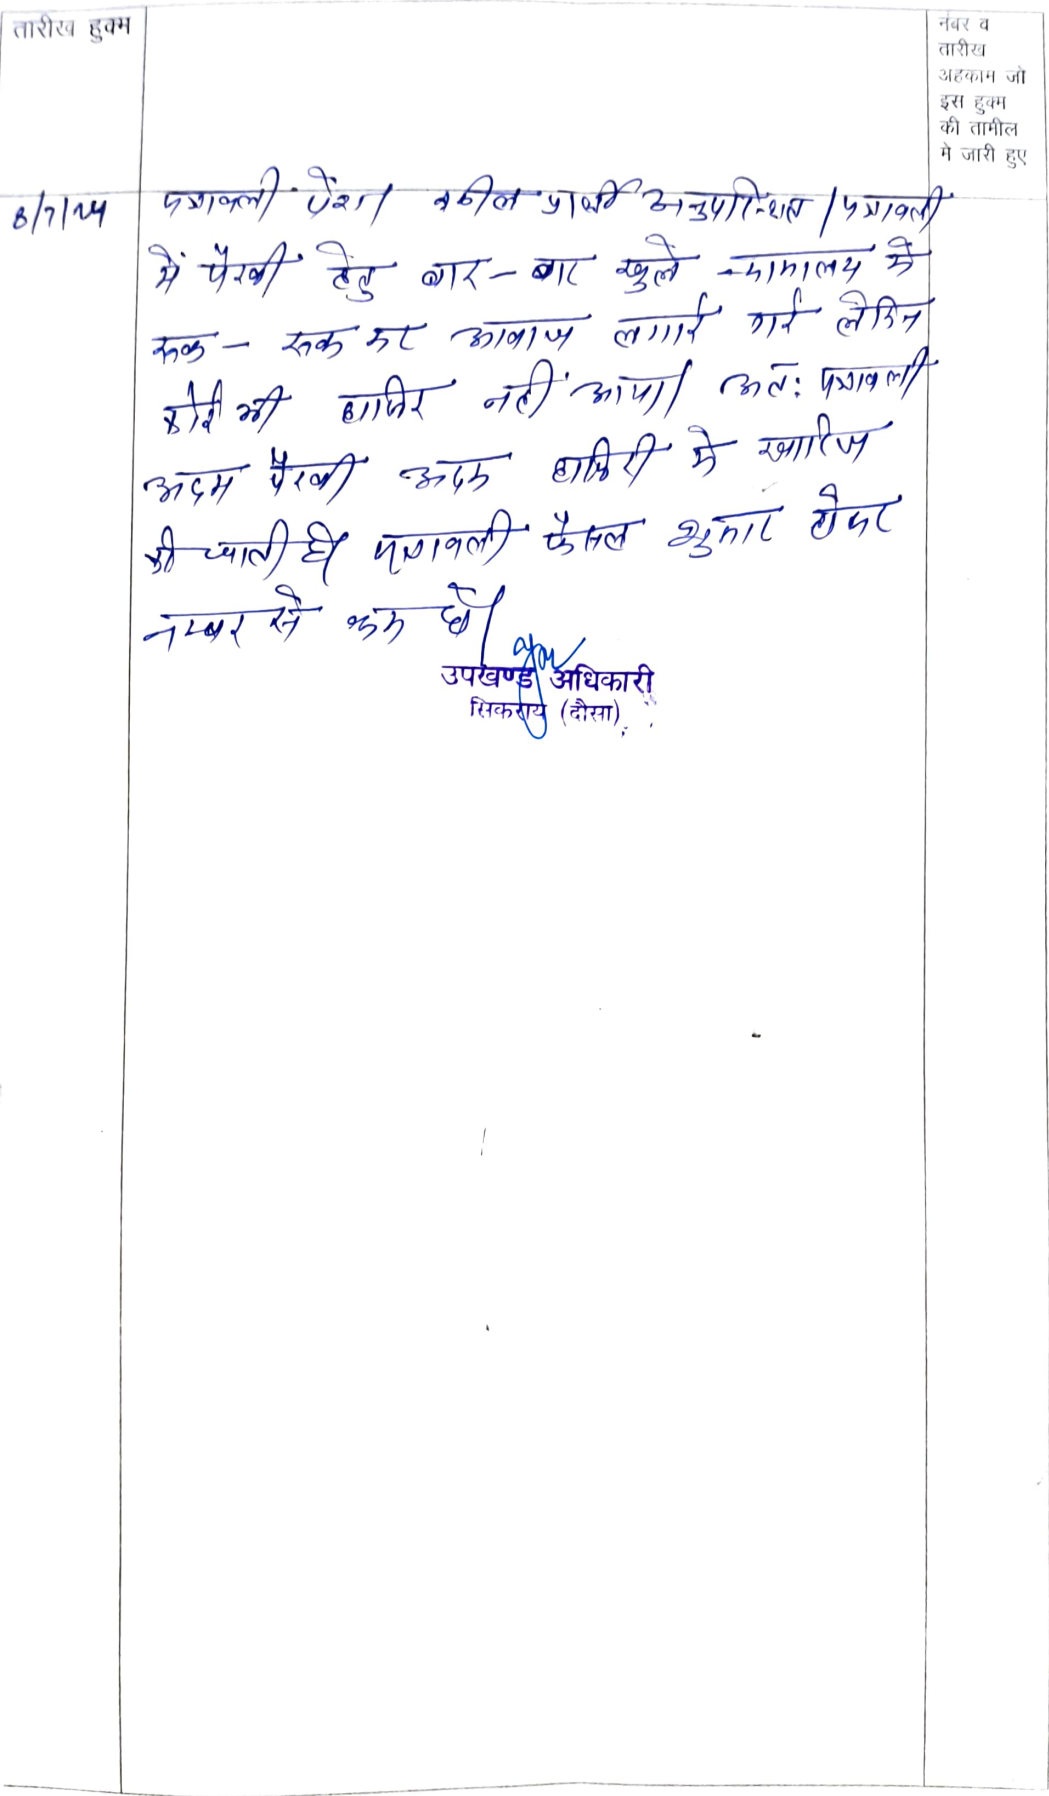 तारीख हुक्म
नंबर व
तारीख
अहकाम जो
इस हुक्म
की तामील
मे जारी हुए
8/7/24 पत्रावली पेश। वकील प्रार्थी अनुपस्थित। पत्रावली
में पैरवी हेतु बार - बार खुले न्यायालय में
रूक - रूक कर आवाज लगाई गई लेकिन
कोई भी हाजिर नहीं आया। अत: पत्रावली
अदम पैरवी अदम हाजिरी मे खारिज
की जाती है। पत्रावली फैसल शुमार होकर
नम्बर से कम हो।
उपखण्ड अधिकारी
सिकराय (दौसा)